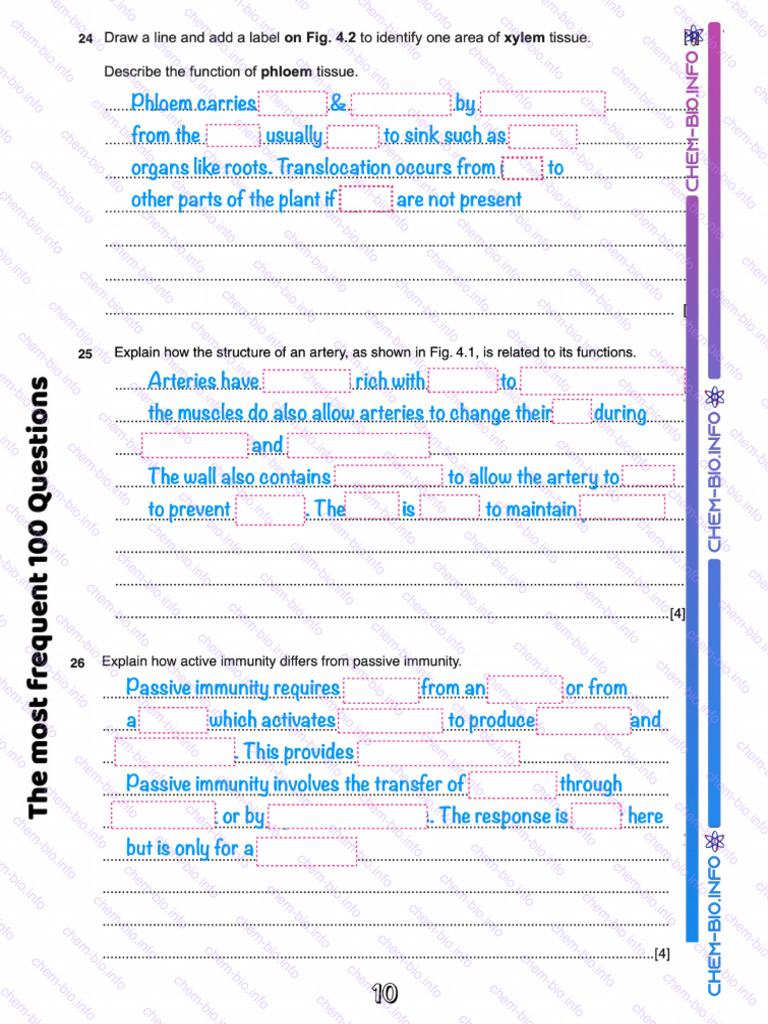 24 Draw a line and add a label on Fig. 4.2 to identify one area of xylem tissue.
Describe the function of phloem tissue.
Phloem carries & by
from the usually to sink such as
organs like roots. Translocation occurs from to
other parts of the plant if are not present
25 Explain how the structure of an artery, as shown in Fig. 4.1, is related to its functions.
Arteries have rich with to
the muscles do also allow arteries to change their during
and
The wall also contains to allow the artery to
to prevent . The is to maintain
[4]
26 Explain how active immunity differs from passive immunity.
Passive immunity requires from an or from
a which activates to produce and
. This provides
Passive immunity involves the transfer of through
or by . The response is here
but is only for a
[4]
10
The most frequent 100 Questions
CHEM-BIO.INFO
CHEM-BIO.INFO
CHEM-BIO.INFO
chem-bio.info